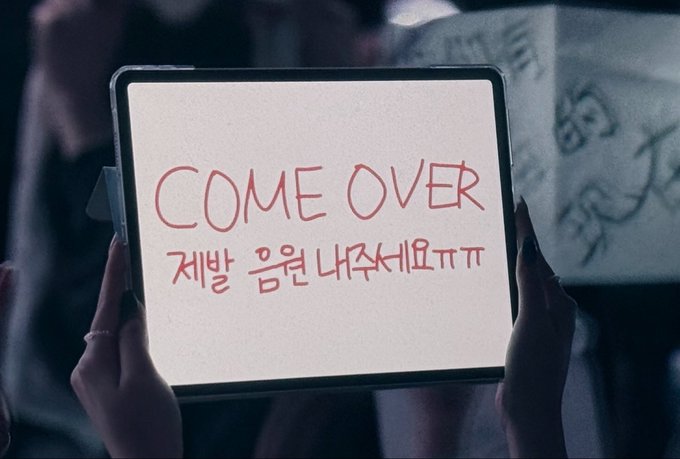 COME OVER
제발 음원 내주세요ㅠㅠ
的
现在